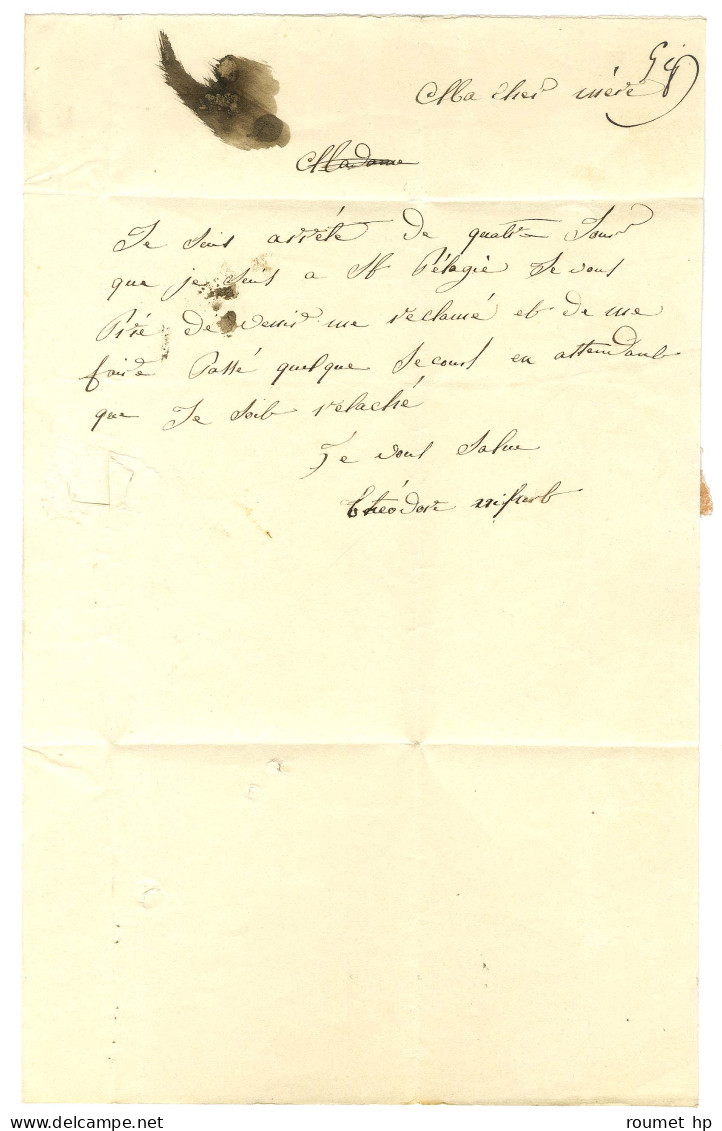 Ma cher mère
Madame
Je suis arrété de quatre Jour
que je suis a St Pélagie Je vous
Prié de venir me réclamé et de me
faire Passé quelque Secours en attendant
que Je soit relaché
Je vous Salue
théodore
roumet hp